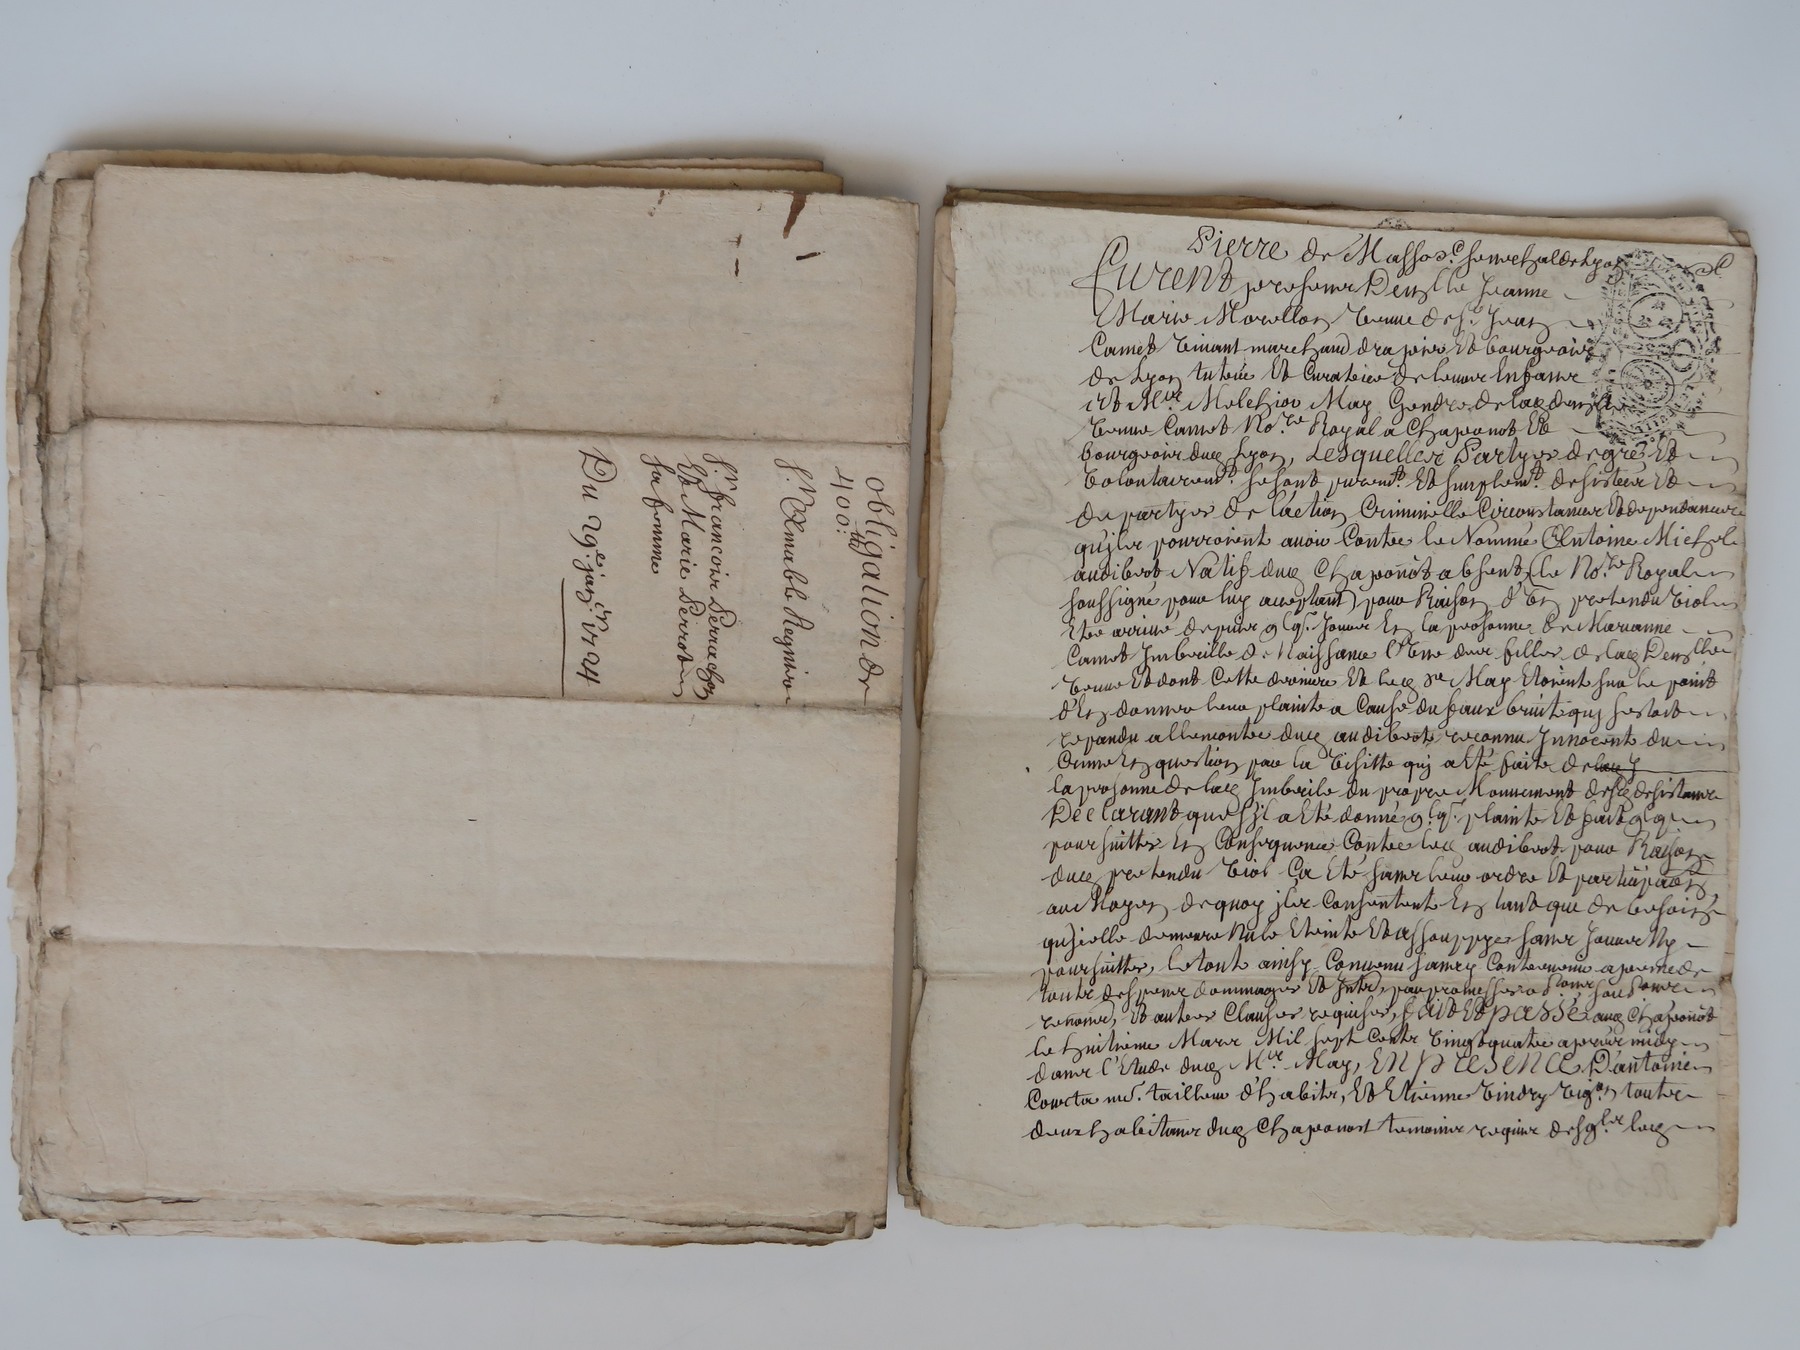 obligation de
400:ᵗᵗ
Sʳ. Aimable Regnier
Sʳ. francois Perrachon
Et Marie Perrot
sa femme
Du 29ᵉ janᵉʳ 1724
Pierre de Masso sᶜ. senechal de Lyon
furent presens Demˡˡᵉ Jeanne
Marie Morellon veuve de sʳ. Jean
Camet vivant marchand drapier Et bourgeois
de Lyon tutrice Et Curatrice de leurs Enfans
Et Mʳᵉ Melchior May Gendre de lad demˡˡᵉ
veuve Camet Noʳᵉ Royal a Chaponost Et
bourgeois dud Lyon, Lesquelles Partyes de gré Et
volontairemᵗ. se sont puremᵗ. Et simplemᵗ. desistees Et
departyes de l'action Criminelle Circonstances Et dependances
qu'jls pourroient avoir Contre le Nommé Antoine Michel
audibert Natif dud Chaponost absent, (le Noʳᵉ Royal
soussigné pour luy acceptant) pour Raison d'En pretendu viol
Etre arrivé depuis qlqˢ. jours En la personne de Marianne
Camet Imbecille de Naissance l'Une des filles de lad Demˡˡᵉ
veuve Et dont Cette derniere Et led sʳ May Etoient sur le point
d'En donner leur plainte a Cause du faux bruit quj s'estoit
repandu allencontre dud audibert reconnu Innocent du
Crime En question par la visitte quj a Eté faite de
la personne de lad Imbecile du propre Mouvement desd desistans
Declarant que s'il a Eté donné qlqˢ. plainte Et fait qlqˢ
poursuittes En Consequence Contre led audibert pour Raison
dud pretendu viol Ça Eté sans leur ordre Et participaon
au Moyen de quoy jls Consentent En tant que de besoin
qu'ielle demeure Nule Eteinte Et assouppye sans jamais Ny
poursuittes, le tout ainsy Convenu sans y Contrevenir a peine de
touts despens dommages Et Intrᵗˢ, par promesses obᵒⁿˢ soumᵒⁿˢ
renonᵒⁿˢ, Et autres Clauses requises, fait Et passé aud Chaponost
le huitieme Mars Mil sept Cents vingt quatre apres midy
dans l'Etude dud Mʳᵉ May, En presence D'antoine
Coucta mᵉ. tailleur d'habits, Et Etienne Vindry vigᵒⁿ touts
deux habitans dud Chaponost temoins requis desqˡˢ led